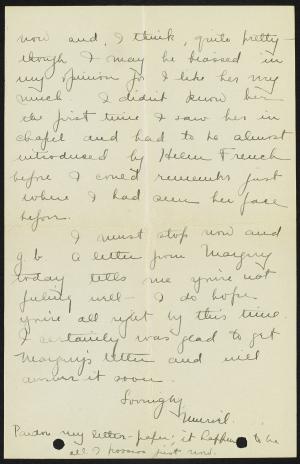 now and, I think, quite pretty -
though I may be biassed in
my opinion for I like her very
much. I didn't know her
the first time I saw her in
chapel and had to be almost
introduced by Helen French
before I could remember just
where I had seen her face
before.
I must stop now and
g.b. A letter from Margery
today tells me you're not
feeling well - I do hope
you're all right by this time.
I certainly was glad to get
Margery's letter and will
answer it soon.
Lovingly
Muriel.
Pardon my letter-paper; it happens to be
all I possess just now.